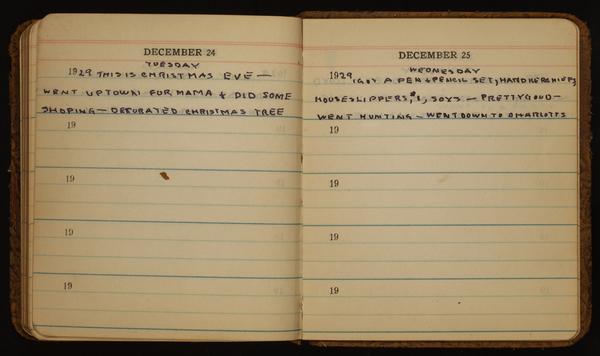 DECEMBER 24
TUESDAY
1929 THIS IS CHRISTMAS EVE —
WENT UPTOWN FOR MAMA & DID SOME
SHOPING — DECURATED CHRISTMAS TREE
19
19
19
19
DECEMBER 25
WEDNESDAY
1929 I GOT A PEN & PENCIL SET, HANDKERCHIEFS,
HOUSESLIPPERS, $1, SOX — PRETTY GOOD —
WENT HUNTING — WENT DOWN TO CHARLOTTS
19
19
19
19